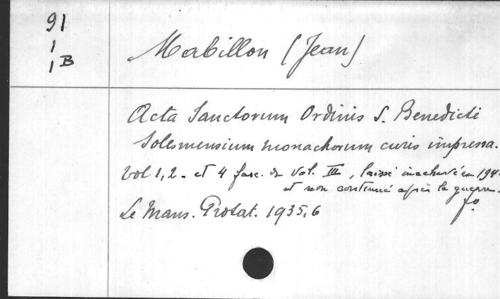 91
1
1 B
Mabillon (Jean)
Acta Sanctorum Ordinis S. Benedicti
Solesmensium monachorum curis impressa.
Vol 1, 2 - et 4 fasc. du Vol. III, laissé inachevé en 194
et non continué après la guerre.
Le Mans. Protat. 1935, 6
fo.